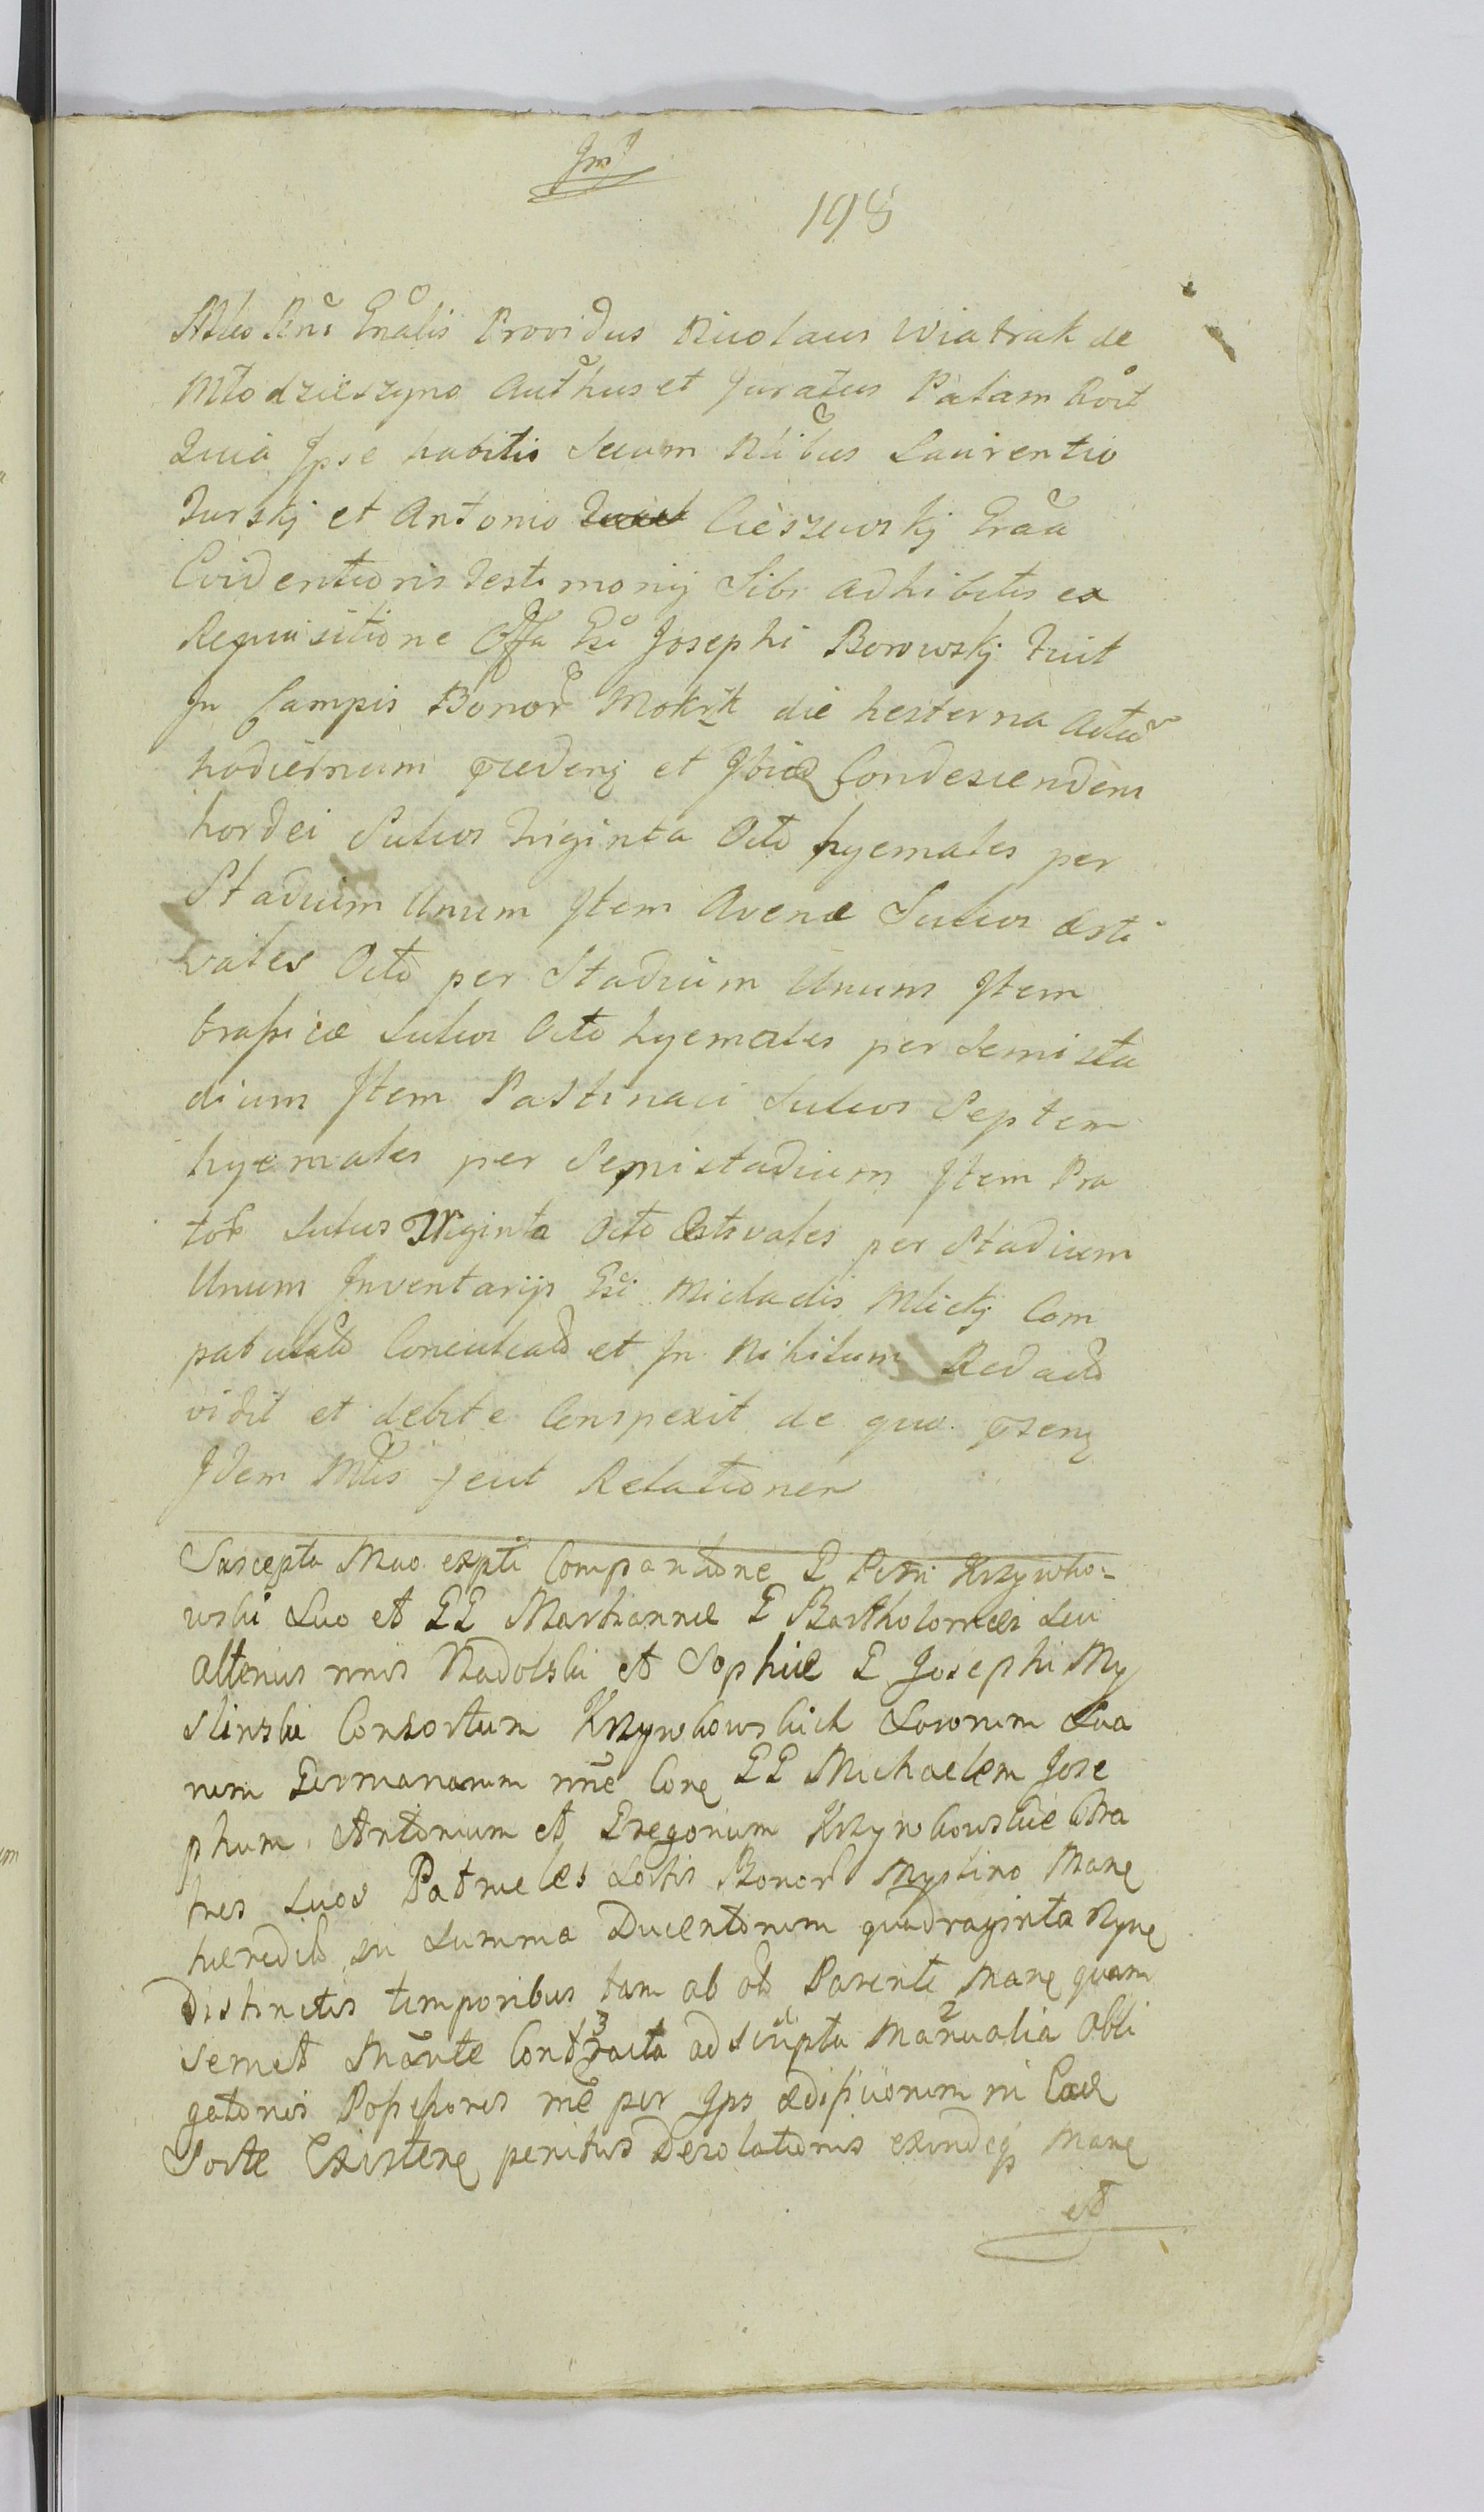 198
Mleo Rńi Gnālis Providus Nicolaus Wiatrak de
Młodzieszyno Auth̃us et Juratus Palam
Quia Ipse habitis Secum Nb̃ibus Laurentio
Turskj et Antonio Cieszewskj Grãa
Evidentioris Testimonij Sibi adhibitis ex
Requisitione Gsi Josephi Borowskj fuit
In Campis Bonor Mokrk die hesterna actũ
hodiernum et Ibid Condescendens
hordei Sulcos Triginta Octo hyemales per
Stadium Unum Item Avenæ Sulcos æsti
vales Octo per Stadium Unum Item
sulcos Octo hyemales per Semista
dium Item Pastinaci Sulcos Septem
hyemales per Semistadium Item Pra
tor Sulcos Triginta Octo Æstivales per Stadium
Unum Inventarijs Gsi Michaelis Mlickj Com
pabulato Conculcato et In Nihilum Redacto
vidit et debite Conspexit de quo
Idem Mlis fecit Relationem
Suscepta Mao expti Comparitione G Petri Krzywko=
wski Suo et GG Marianne G Bartholomei Seu
alterius nnis Nadolski et Sophiæ G Josephi My
slinski Consortum Krzywkowskich Sororum Sua
rum Germanarum nne Core GG Michaelem Jose
phum Antonium et Gregorium Krzywkowskie Fra
tres Suos Patrueles Sortis Bonor Myslino
heredib in Summa Ducentorum quadraginta
Distinctis temporibus tam ab ob Parente quam
semet Contracta 3 ad scripta Manualia 2 Obli
gatoris per Ips ædificiorum in Ead
Sorte Existen penitus Desolationis exindeq
et